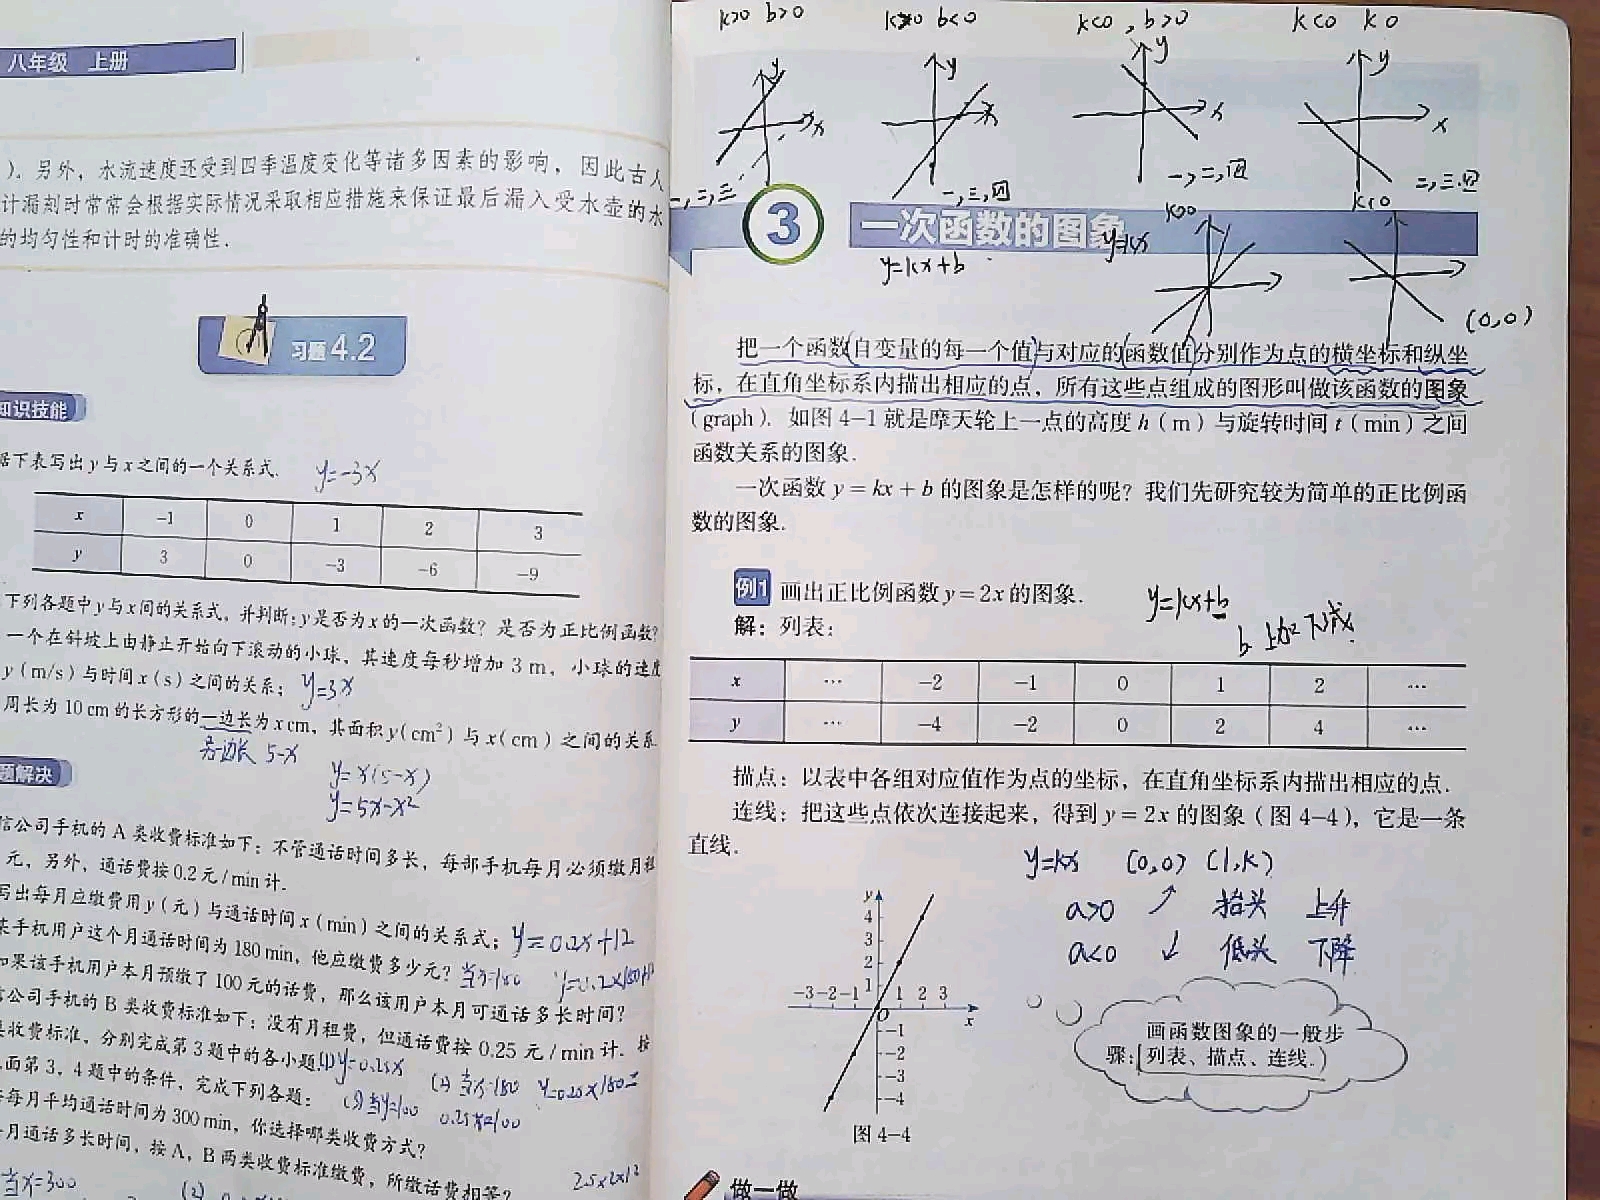 八年级 上册
)。另外，水流速度还受到四季温度变化等诸多因素的影响，因此古人
计漏刻时常常会根据实际情况采取相应措施来保证最后漏入受水壶的水
的均匀性和计时的准确性.
习题 4.2
知识技能
据下表写出 y 与 x 之间的一个关系式. y=-3x
x -1 0 1 2 3
y 3 0 -3 -6 -9
下列各题中 y 与 x 间的关系式，并判断：y 是否为 x 的一次函数？是否为正比例函数？
一个在斜坡上由静止开始向下滚动的小球，其速度每秒增加 3 m，小球的速度
y (m/s) 与时间 x (s) 之间的关系； y=3x
周长为 10 cm 的长方形的一边长为 x cm，其面积 y(cm²) 与 x(cm) 之间的关系.
另一边长 5-x
y=x(5-x)
y=5x-x²
题解决
信公司手机的 A 类收费标准如下：不管通话时间多长，每部手机每月必须缴月租
元，另外，通话费按 0.2 元/min 计.
写出每月应缴费用 y (元) 与通话时间 x (min) 之间的关系式； y=0.2x+12
某手机用户这个月通话时间为 180 min，他应缴费多少元？ 当x=180 y=0.2x180+12
如果该手机用户本月预缴了 100 元的话费，那么该用户本月可通话多长时间？
信公司手机的 B 类收费标准如下：没有月租费，但通话费按 0.25 元/min 计. 按
类收费标准，分别完成第 3 题中的各小题. (1) y=0.25x
(2) 当x=180 y=0.25x180=
面第 3，4 题中的条件，完成下列各题：
(3) 当y=100 0.25x=100
每月平均通话时间为 300 min，你选择哪类收费方式？
月通话多长时间，按 A，B 两类收费标准缴费，所缴话费相等？
当x=300
k>0 b>0 k>0 b<0 k<0, b>0 k<0 k 0
y y y y
x x x x
一, 二, 三 一, 三, 四 一, 二, 四 二, 三, 四
3 一次函数的图象
y=kx+b y=kx k>0 k<0
(0,0)
把一个函数(自变量的每一个值)与对应的(函数值)分别作为点的横坐标和纵坐
标，在直角坐标系内描出相应的点，所有这些点组成的图形叫做该函数的图象
(graph). 如图 4-1 就是摩天轮上一点的高度 h (m) 与旋转时间 t (min) 之间
函数关系的图象.
一次函数 y = kx + b 的图象是怎样的呢？我们先研究较为简单的正比例函
数的图象.
例1 画出正比例函数 y = 2x 的图象. y=kx+b
b 上加下减
解：列表：
x … -2 -1 0 1 2 …
y … -4 -2 0 2 4 …
描点：以表中各组对应值作为点的坐标，在直角坐标系内描出相应的点.
连线：把这些点依次连接起来，得到 y = 2x 的图象 (图 4-4)，它是一条
直线.
y=kx (0,0) (1,k)
a>0 ↗ 抬头 上升
a<0 ↙ 低头 下降
y
4
3
2
1
-3 -2 -1 O 1 2 3 x
-1
-2
-3
-4
图 4-4
画函数图象的一般步
骤：[列表、描点、连线.)
做一做